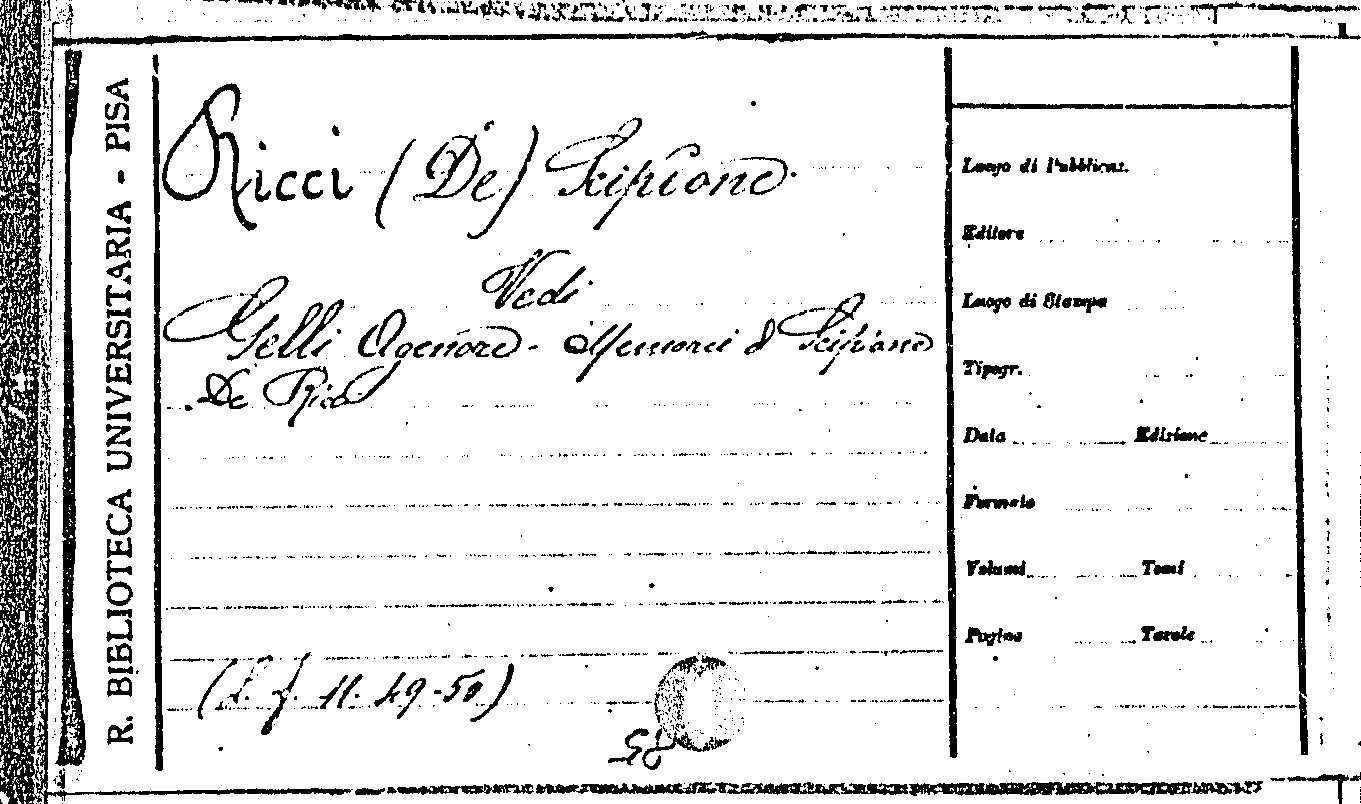 R. BIBLIOTECA UNIVERSITARIA - PISA
Ricci (De) Scipione
Vedi
Gelli Agenore - Memorie di Scipione
De Ricci
11. 49-50)
Luogo di Pubblicaz.
Editore
Luogo di Stampa
Tipogr.
Data Edizione
Formato
Volumi Tomi
Pagine Tavole